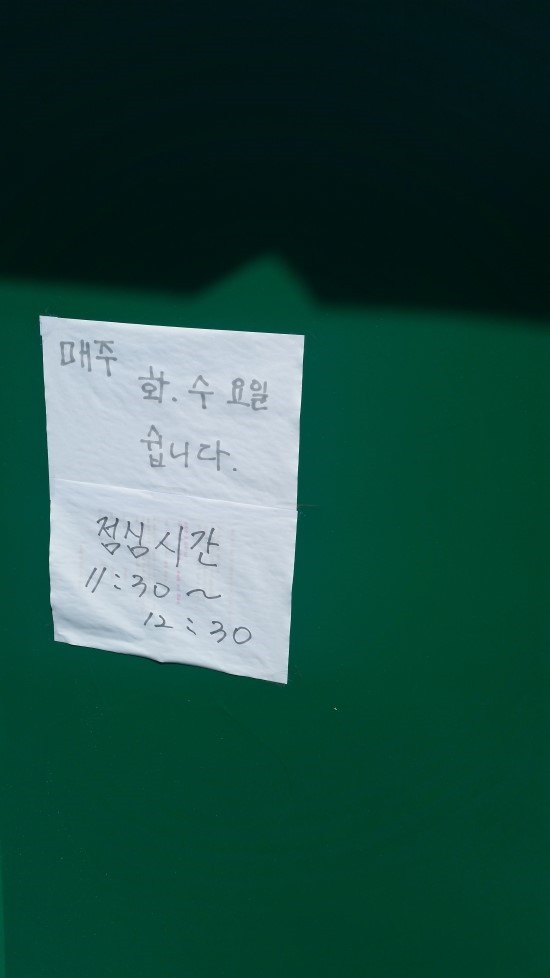 매주
화. 수 요일
쉽니다.
점심시간
11:30 ~
12:30